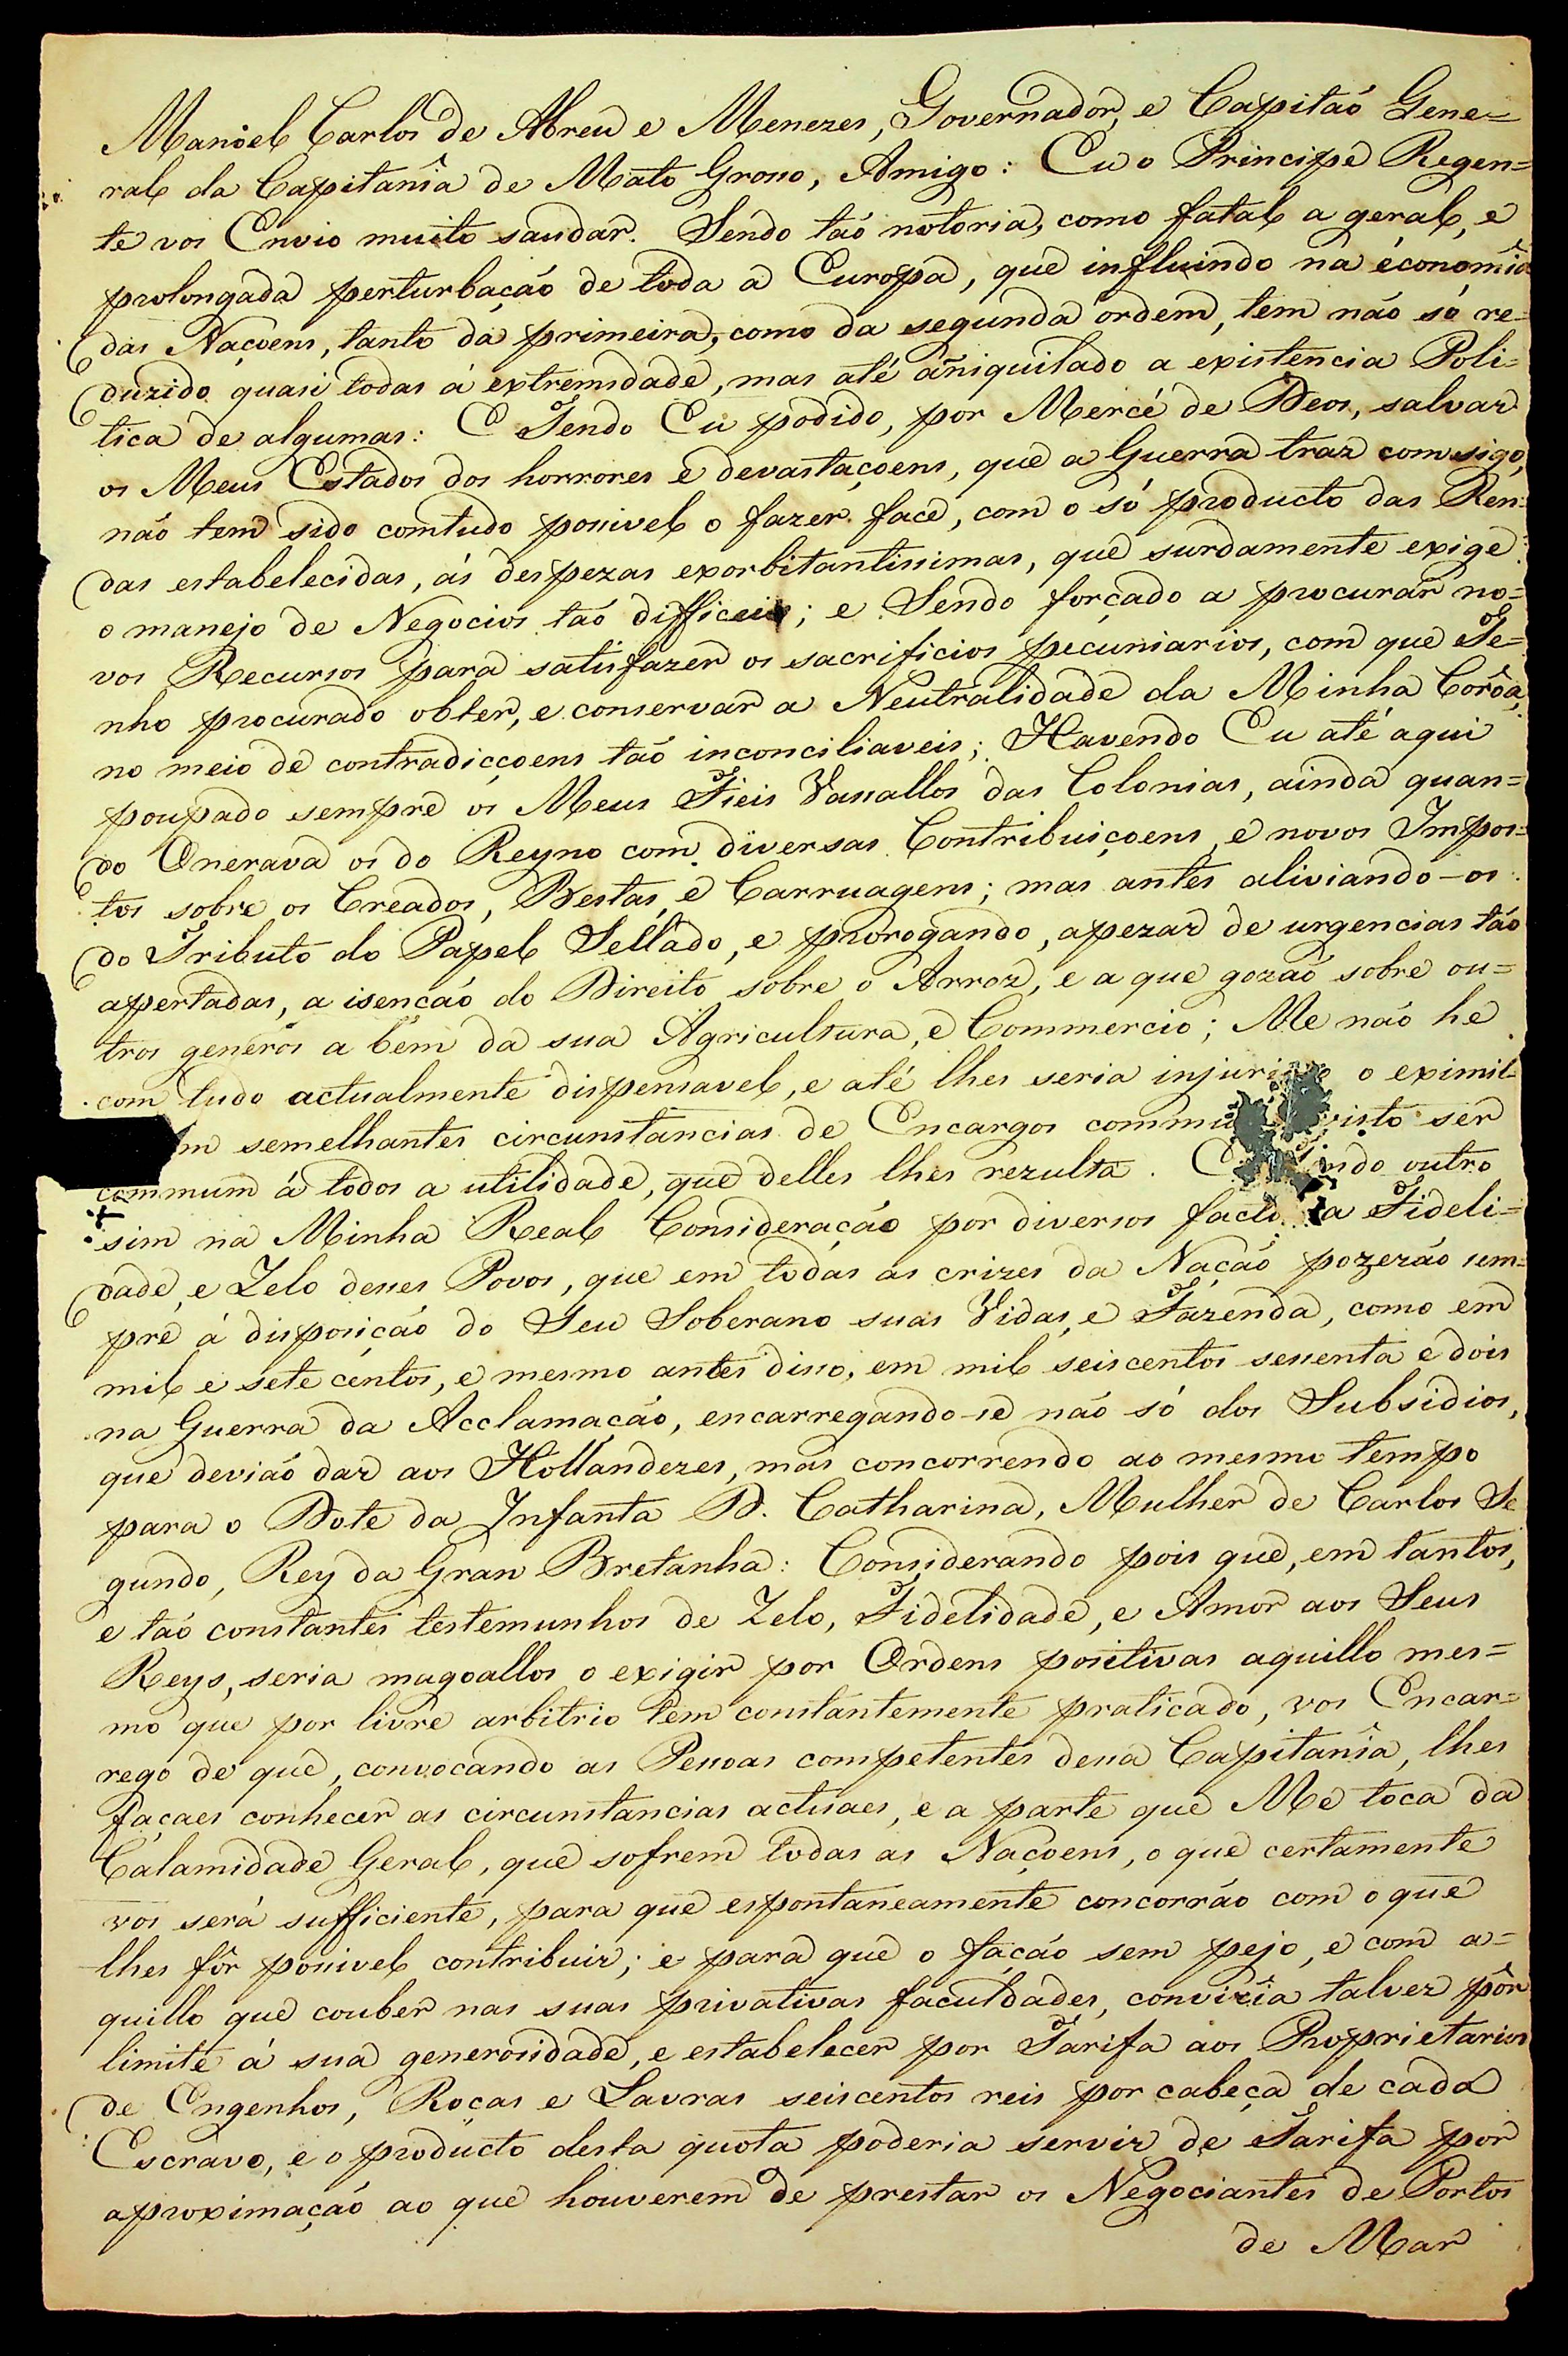 Manoel Carlos de Abreu e Menezes, Governador, e Capitaõ Gene=
ral da Capitanîa de Mato Grosso, Amigo: Eu o Principe Regen=
te vos Envio muito saudar. Sendo taõ notoria, como fatal a geral, e
prolongada perturbaçaõ de toda a Europa, que influindo na économîa
das Naçoens, tanto da primeira, como da segunda ordem, tem naõ só re=
duzido quasi todas á extremidade, mas até aniquilado a existencia Poli=
tica de algumas: E Tendo Eu podido, por Mercé de Deos, salvar
os Meus Estados dos horrores e devastaçoens, que a Guerra traz comsigo,
naõ tem sido comtudo possivel o fazer face, com o só producto das Ren=
das estabelecidas, ás despezas exorbitantissimas, que surdamente exige
o manejo de Negocios taõ difficeis; e Sendo forçado a procurar no=
vos Recursos para satisfazer os sacrificios pecuniarios, com que Te=
nho procurado obter, e conservar a Neutralidade da Minha Corôa,
no meio de contradicçoens taõ inconciliaveis; Havendo Eu até aqui
poupado sempre os Meus Fieis Vassallos das Colonias, ainda quan=
do Onerava os do Reyno com diversas Contribuiçoens, e novos Impos=
tos sobre os Creados, Bestas, e Carruagens; mas antes aliviando-os
do Tributo do Papel Sellado, e prorogando, apezar de urgencias taõ
apertadas, a isençaõ do Direito sobre o Arroz, e a que gozaõ sobre ou=
tros generos a bem da sua Agricultura, e Commercio; Me naõ he
com tudo actualmente dispensavel, e até lhes seria o eximil=
semelhantes circunstancias de Encargos visto ser
commum á todos a utilidade, que delles lhes rezulta. outro
sim na Minha Real Consideraçaõ por diversos a Fideli=
dade, e Zelo desses Povos, que em todas as crizes da Naçaõ pozeraõ sem=
pre á disposiçaõ do Seu Soberano suas Vidas, e Fazenda, como em
mil e sete centos, e mesmo antes disso, em mil seiscentos sessenta e dois
na Guerra da Acclamaçaõ, encarregando-se naõ só dos Subsidios,
que deviaõ dar aos Hollandezes, mas concorrendo ao mesmo tempo
para o Dote da Infanta D. Catharina, Mulher de Carlos Se
gundo, Rey da Gran Bretanha: Considerando pois que, em tantos,
e taõ constantes testemunhos de Zelo, Fidelidade, e Amor aos Seus
Reys, seria magoallos o exigir por Ordens positivas aquillo mes=
mo que por livre arbitrio tem constantemente praticado, vos Encar=
rego de que, convocando as Pessoas competentes dessa Capitanîa, lhes
façaes conhecer as circunstancias actuaes, e a parte que Me toca da
Calamidade Geral, que sofrem todas as Naçoens, o que certamente
vos será sufficiente, para que espontaneamente concorráo com o que
lhes fôr possivel contribuir; e para que o façaõ sem pejo, e com a=
quillo que couber nas suas privativas faculdades, convirîa talvez pôr
limite á sua generosidade, e estabelecer por Tarifa aos Proprietarios
de Engenhos, Roças e Lavras seiscentos reis por cabeça de cada
Escravo, e o producto desta quota poderia servir de Tarifa por
aproximaçaõ ao que houverem de prestar os Negociantes de Portos
de Mar